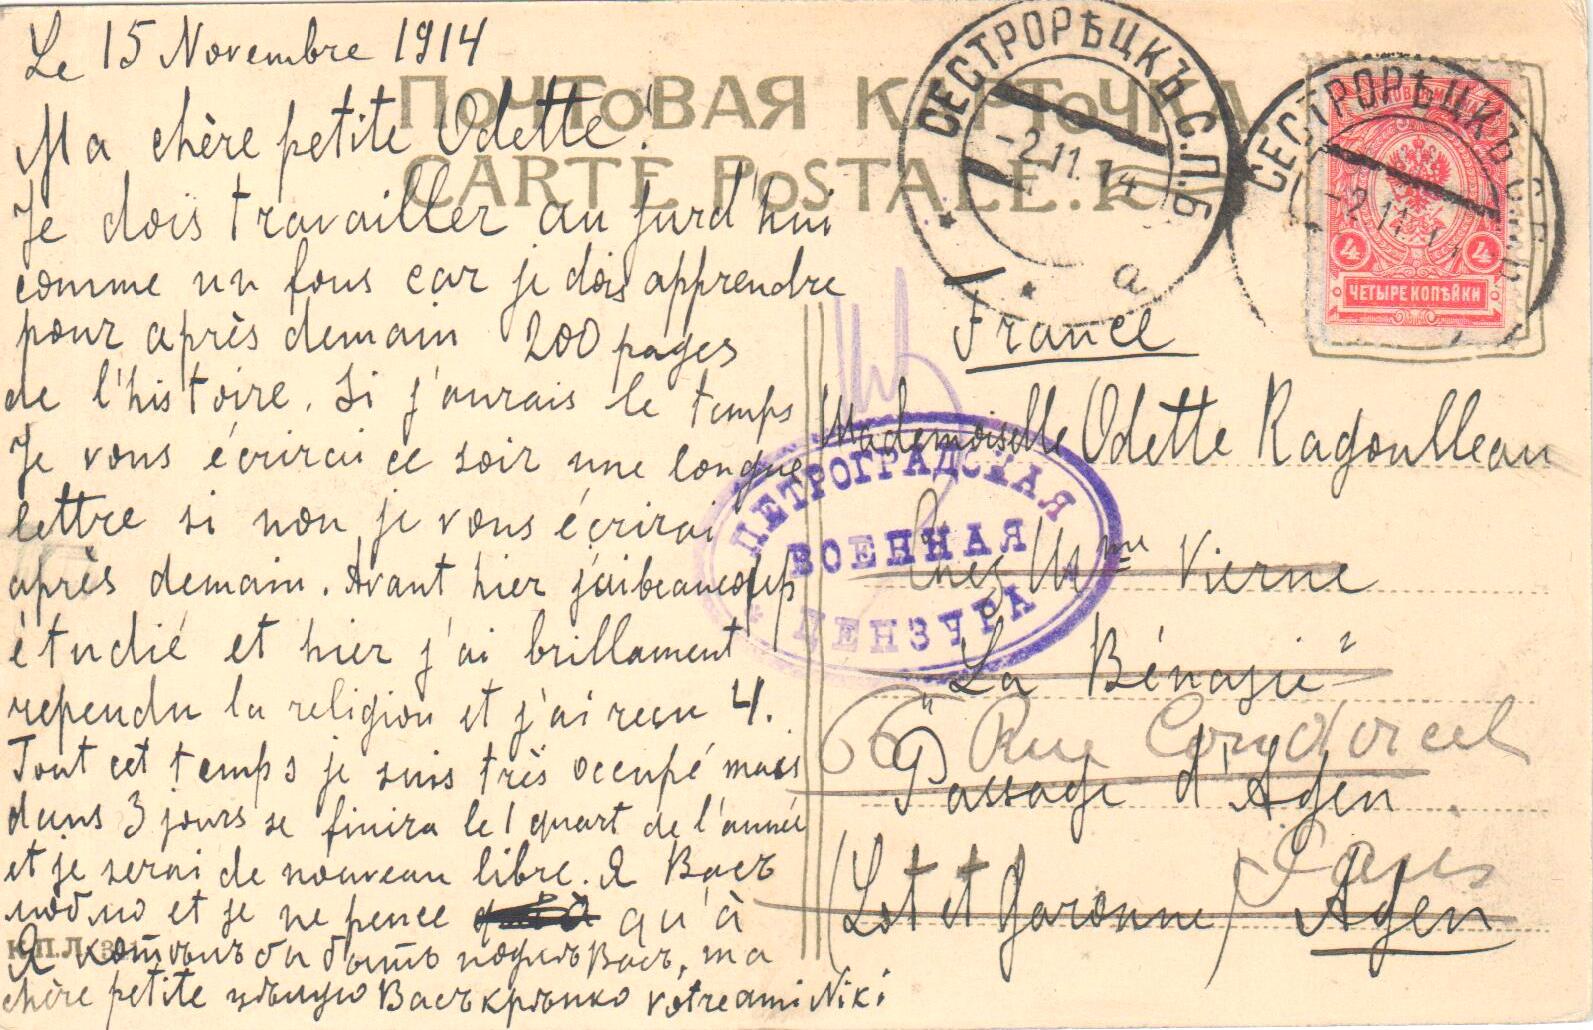 Le 15 Novembre 1914
Ma chère petite Odette!
Je dois travailler au jurd'hui
comme un fous car je dois apprendre
pour après demain 200 pages
de l'histoire. Si j'aurais le temps
Je vous écrirai ce soir une longue
lettre si non je vous écrirai
après demain. Avant hier j'ai beaucoup
étudié et hier j'ai brillament
rependu la religion et j'ai reçu 4.
Tout cet temps je suis très occupé mais
dans 3 jours se finira le 1 quart de l'année
et je serai de nouveau libre. Я Васъ
люблю et je ne pence qu'à
Я бы быть Васъ, ma
chère petite цѣлую Васъ крѣпко vôtre ami Niki
ПОЧТОВАЯ КАРТОЧКА.
CARTE POSTALE.
СЕСТРОРѢЦКЪ С.П.Б.
-2.11.14
а
СЕСТРОРѢЦКЪ
-2.11.14
4 4
ЧЕТЫРЕ КОПѢЙКИ
France
Mademoiselle Odette Ragoulleau
ПЕТРОГРАДСКАЯ
ВОЕННАЯ
ЦЕНЗУРА
Chez Mme Vierne
"La Bénazie"
66 Rue Condorcet
Passage d'Agen
Paris
(Lot et Garonne) Agen